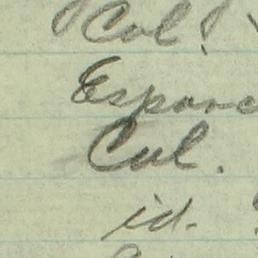 Col.
Espare
Cul.
id.